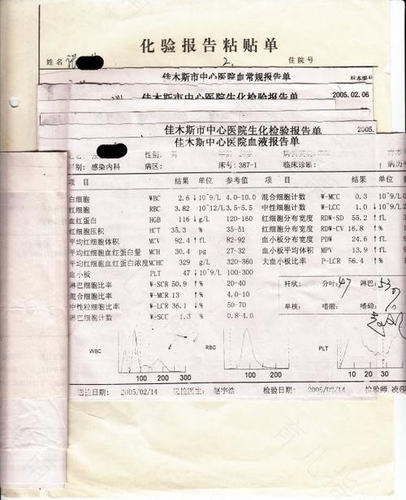 化验报告粘贴单
姓名 2. 住院号
佳木斯市中心医院血常规报告单
佳木斯市中心医院生化检验报告单 2005.02.06
佳木斯市中心医院生化检验报告单 2005.
佳木斯市中心医院血液报告单
性别: 男
科别: 感染内科 病区: 床号: 387-1 临床诊断:
项 目 结果 单位 参考值 项 目 结果 单位
白细胞 WBC 2.6 ↓10^9/L 4.0-10.0 混合细胞计数 W-MCC 0.3 10^9/L
红细胞 RBC 3.82 10^12/L 3.5-5.5 中性细胞计数 W-LCC 1.0 ↓10^9/L
血红蛋白 HGB 116 ↓g/L 120-160 红细胞分布宽度 RDW-SD 55.2 fL
红细胞压积 HCT 35.3 % 35-51 红细胞分布宽度 RDW-CV 16.8 %
平均红细胞体积 MCV 92.4 ↑fL 82-92 血小板分布宽度 PDW 24.6 fL
平均红细胞血红蛋白量 MCH 30.4 pg 27-32 血小板平均体积 MPV 13.9 fL
平均红细胞血红蛋白浓度 MCHC 329 g/L 320-360 大血小板比率 P-LCR 56.4
血小板 PLT 47 ↓10^9/L 100-300
淋巴细胞比率 W-SCR 50.9 % 20-40 杆状: 分叶: 47 淋巴: 53
混合细胞比率 W-MCR 13 % 4.0-10
中性粒细胞比率 W-LCR 36.1 % 50-70 单核: 嗜酸: 嗜碱:
淋巴细胞计数 W-SCC 1.3 0.8-4.0
WBC RBC PLT
100 200 300 100 200 10 20 30
送检日期: 2005/02/14 送检医生: 赵宇浩 检验日期: 2005/02/14 检验师